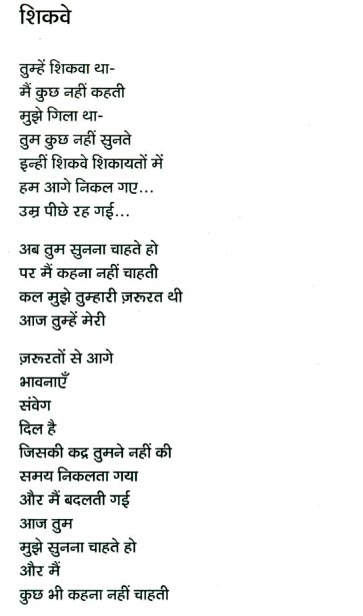 शिकवे
तुम्हें शिकवा था-
मैं कुछ नहीं कहती
मुझे गिला था-
तुम कुछ नहीं सुनते
इन्हीं शिकवे शिकायतों में
हम आगे निकल गए...
उम्र पीछे रह गई...
अब तुम सुनना चाहते हो
पर मैं कहना नहीं चाहती
कल मुझे तुम्हारी ज़रूरत थी
आज तुम्हें मेरी
ज़रूरतों से आगे
भावनाएँ
संवेग
दिल है
जिसकी कद्र तुमने नहीं की
समय निकलता गया
और मैं बदलती गई
आज तुम
मुझे सुनना चाहते हो
और मैं
कुछ भी कहना नहीं चाहती